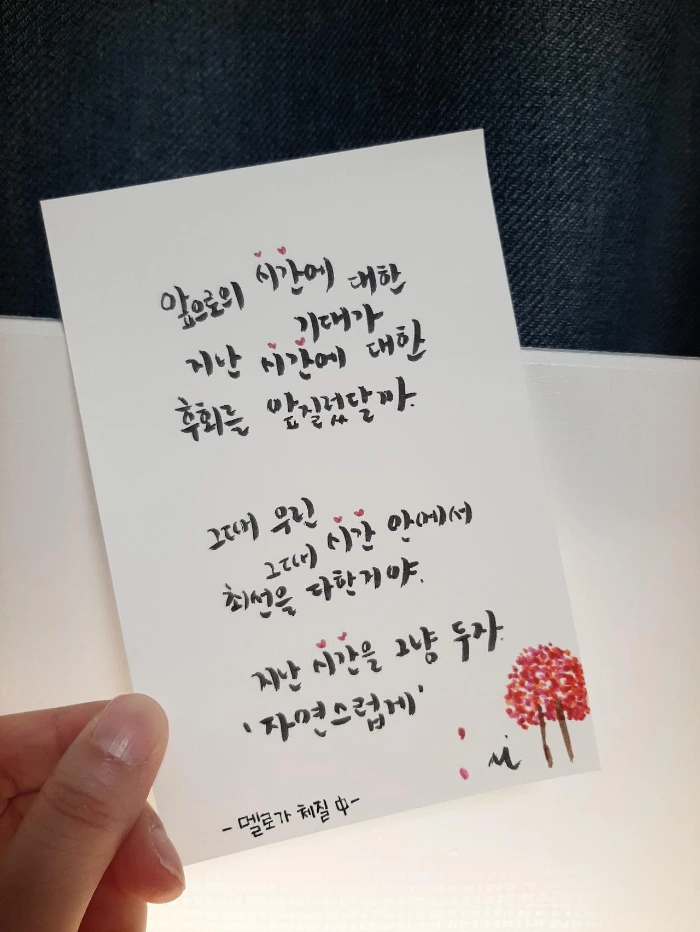 앞으로의 시간에 대한
기대가
지난 시간에 대한
후회를 앞질렀달까.
그때 우린
그때 시간 안에서
최선을 다한거야.
지난 시간을 그냥 두자.
'자연스럽게'
-멜로가 체질 中-